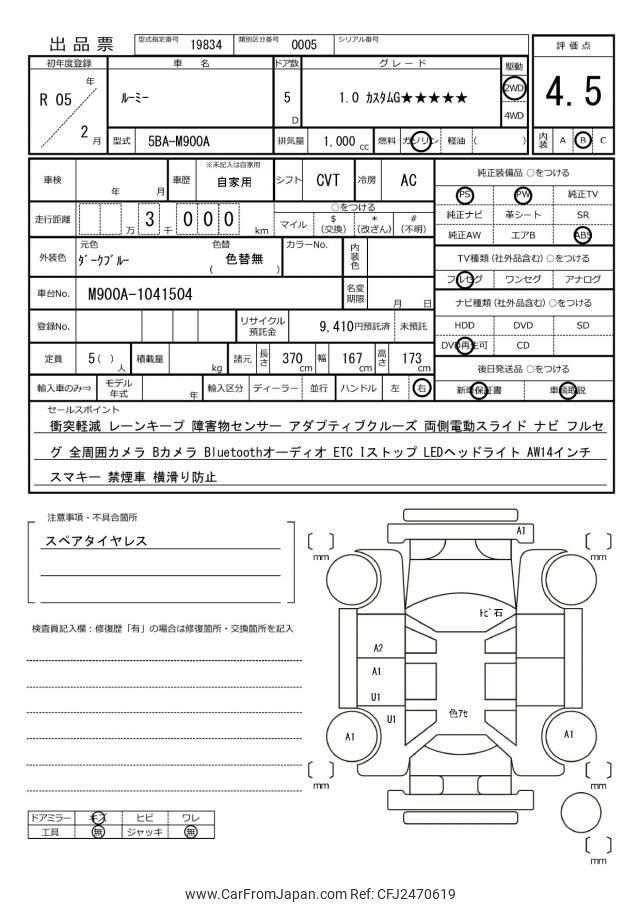 出品票 型式指定番号 19834 類別区分番号 0005 シリアル番号
評価点
4.5
内装 A B C
初年度登録 車名 ドア数 グレード 駆動
R 05 年 2 月 ルーミー 5 D 1.0 カスタムG★★★★★ 2WD 4WD
型式 5BA-M900A 排気量 1,000 cc 燃料 ガソリン 軽油 ( )
車検 年 月 車歴 ※未記入は自家用 自家用 シフト CVT 冷房 AC
走行距離 万 3 千 0 0 0 km ○をつける
マイル $(交換) *(改ざん) #(不明)
外装色 元色 ダークブルー 色替 ( 色替無 ) カラーNo. 内装色
車台No. M900A-1041504 名変期限 月 日
登録No. リサイクル預託金 9,410円預託済 未預託
定員 5 ( ) 人 積載量 kg 諸元 長さ 370 cm 幅 167 cm 高さ 173 cm
輸入車のみ⇒ モデル年式 年 輸入区分 ディーラー 並行 ハンドル 左 右
純正装備品 ○をつける
PS PW 純正TV
純正ナビ 革シート SR
純正AW エアB ABS
TV種類 (社外品含む) ○をつける
フルセグ ワンセグ アナログ
ナビ種類 (社外品含む) ○をつける
HDD DVD SD
DVD再生可 CD
後日発送品 ○をつける
新車保証書 車輌取説
セールスポイント
衝突軽減 レーンキープ 障害物センサー アダプティブクルーズ 両側電動スライド ナビ フルセ
グ 全周囲カメラ Bカメラ Bluetoothオーディオ ETC Iストップ LEDヘッドライト AW14インチ
スマキー 禁煙車 横滑り防止
注意事項・不具合箇所
スペアタイヤレス
検査員記入欄：修復歴「有」の場合は修復箇所・交換箇所を記入
ドアミラー キズ ヒビ ワレ
工具 無 ジャッキ 無
A1
mm
mm
ﾄﾋﾞ石
A2
A1
U1
U1
色ｱｾ
A1
A1
mm
mm
mm
www.CarFromJapan.com Ref: CFJ2470619